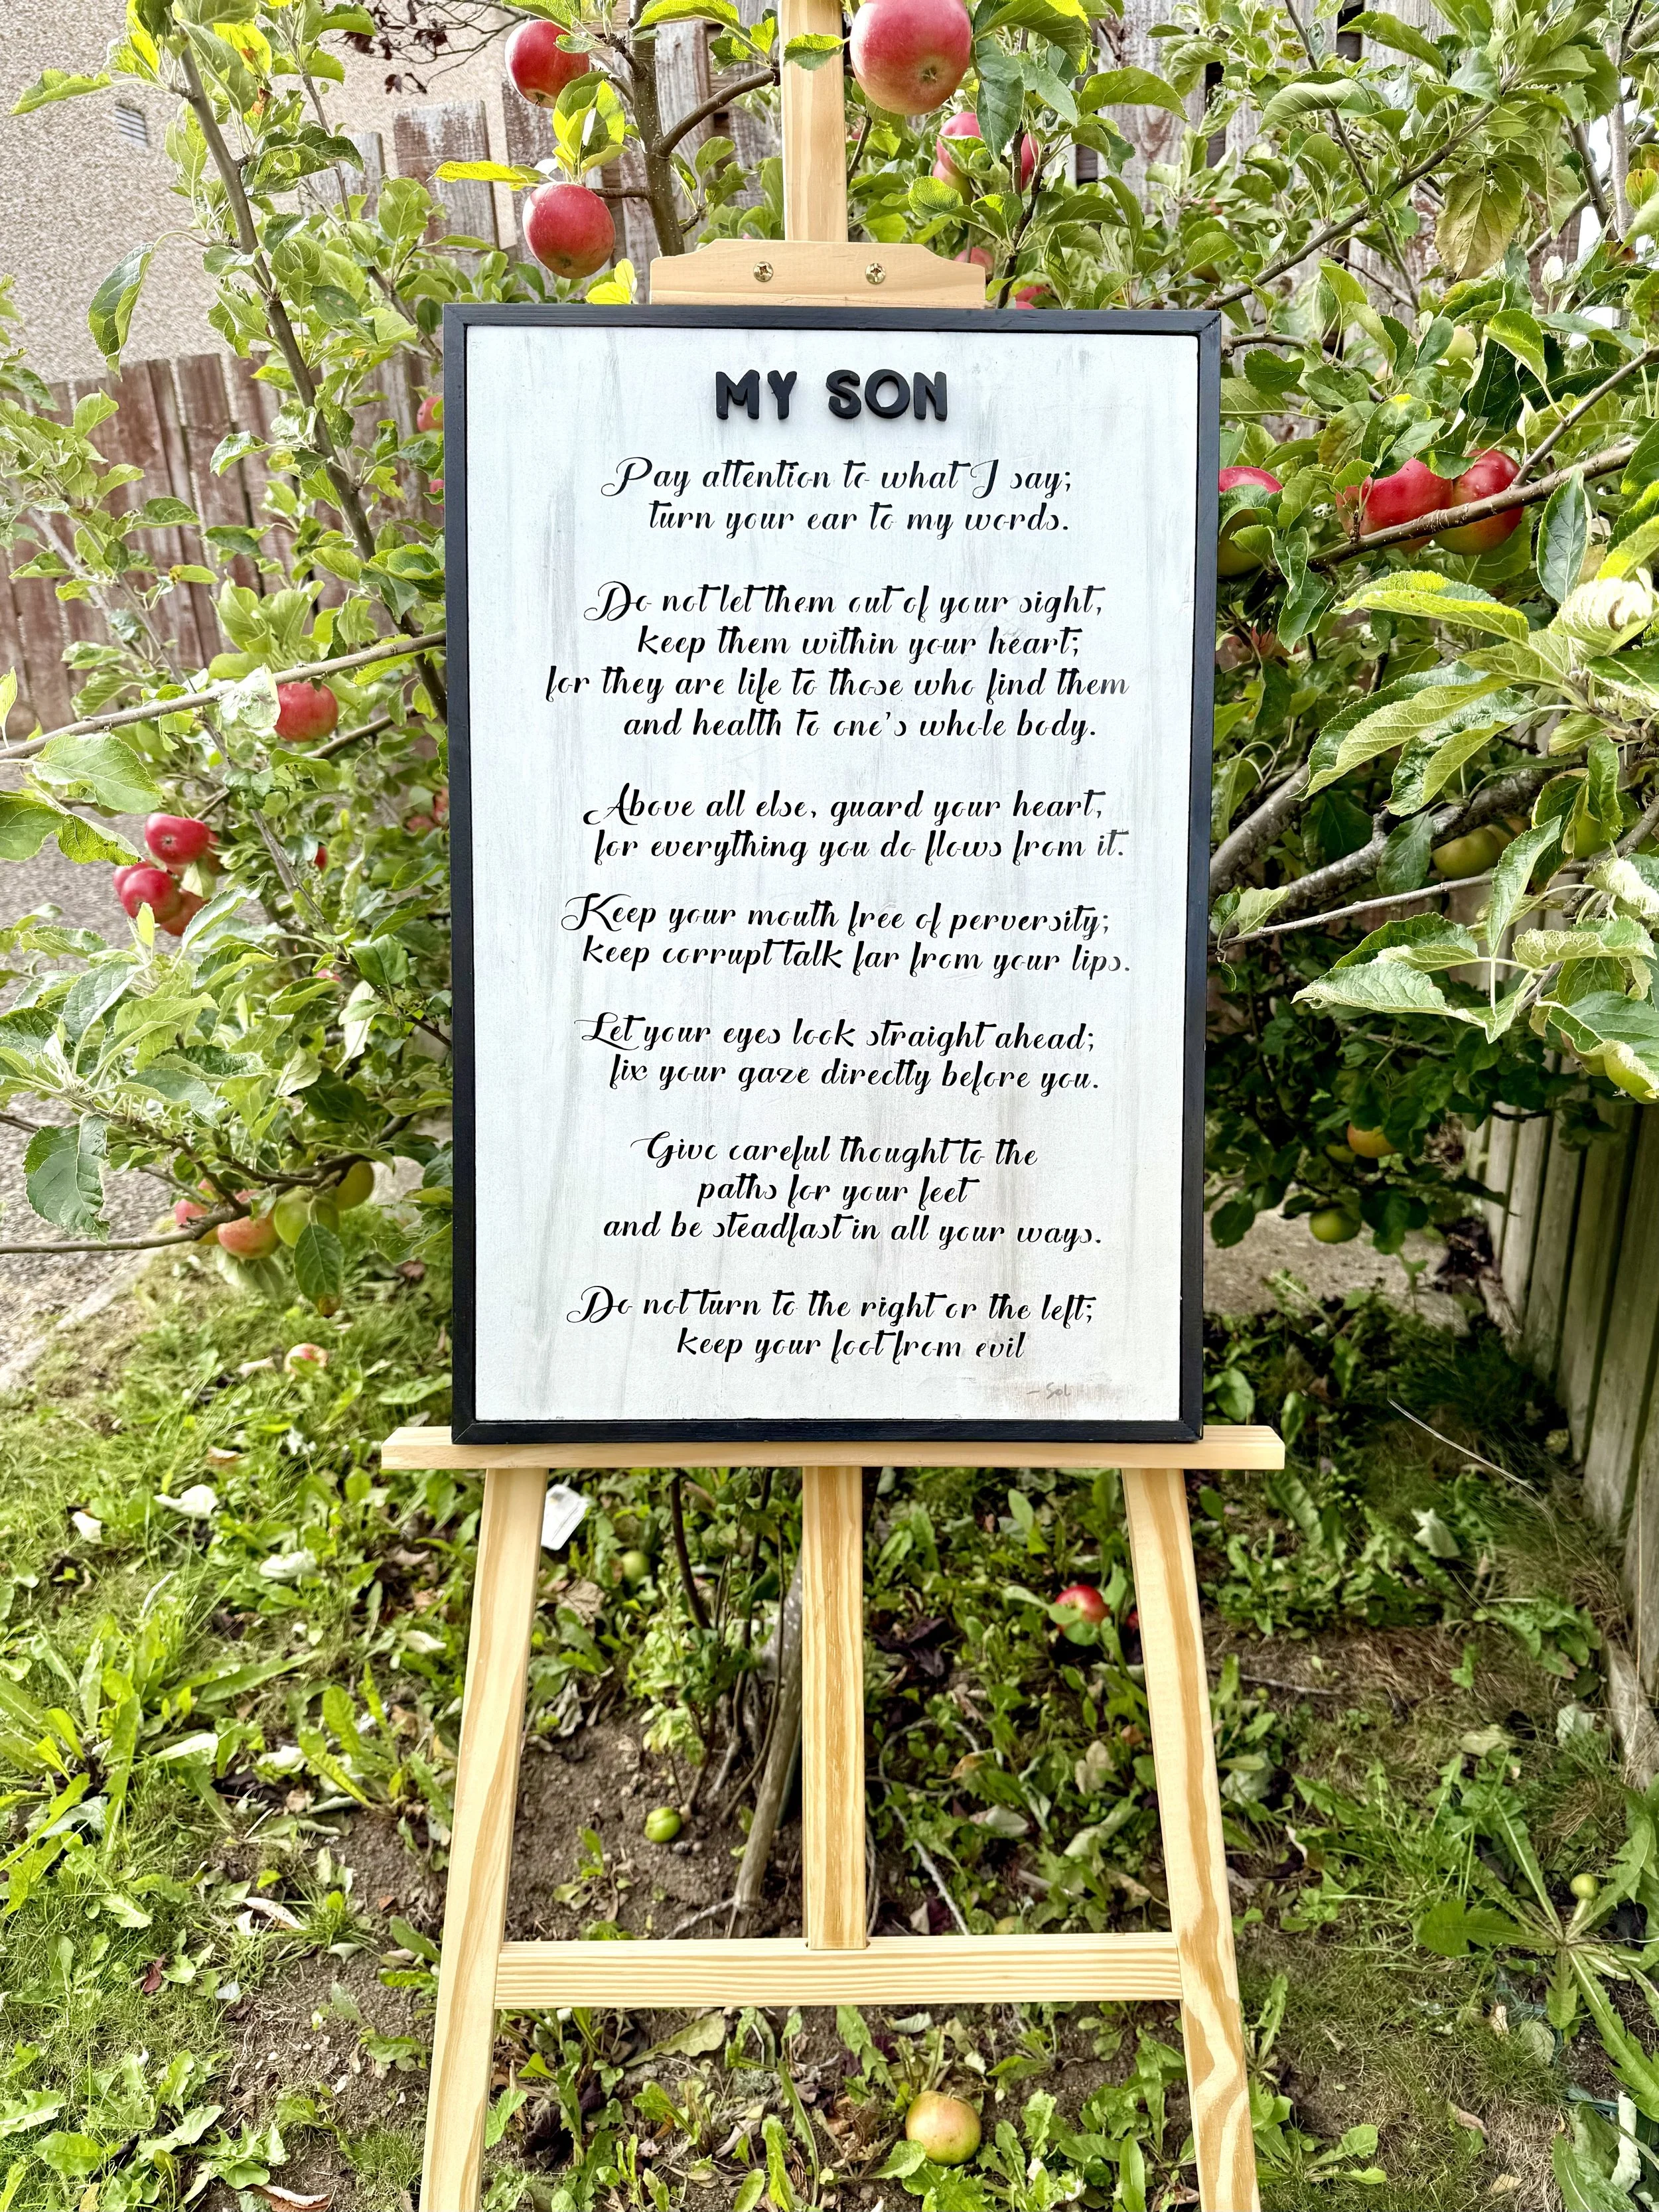 MY SON
Pay attention to what I say;
turn your ear to my words.
Do not let them out of your sight,
keep them within your heart;
for they are life to those who find them
and health to one's whole body.
Above all else, guard your heart,
for everything you do flows from it.
Keep your mouth free of perversity;
keep corrupt talk far from your lips.
Let your eyes look straight ahead;
fix your gaze directly before you.
Give careful thought to the
paths for your feet
and be steadfast in all your ways.
Do not turn to the right or the left;
keep your foot from evil
- Sol